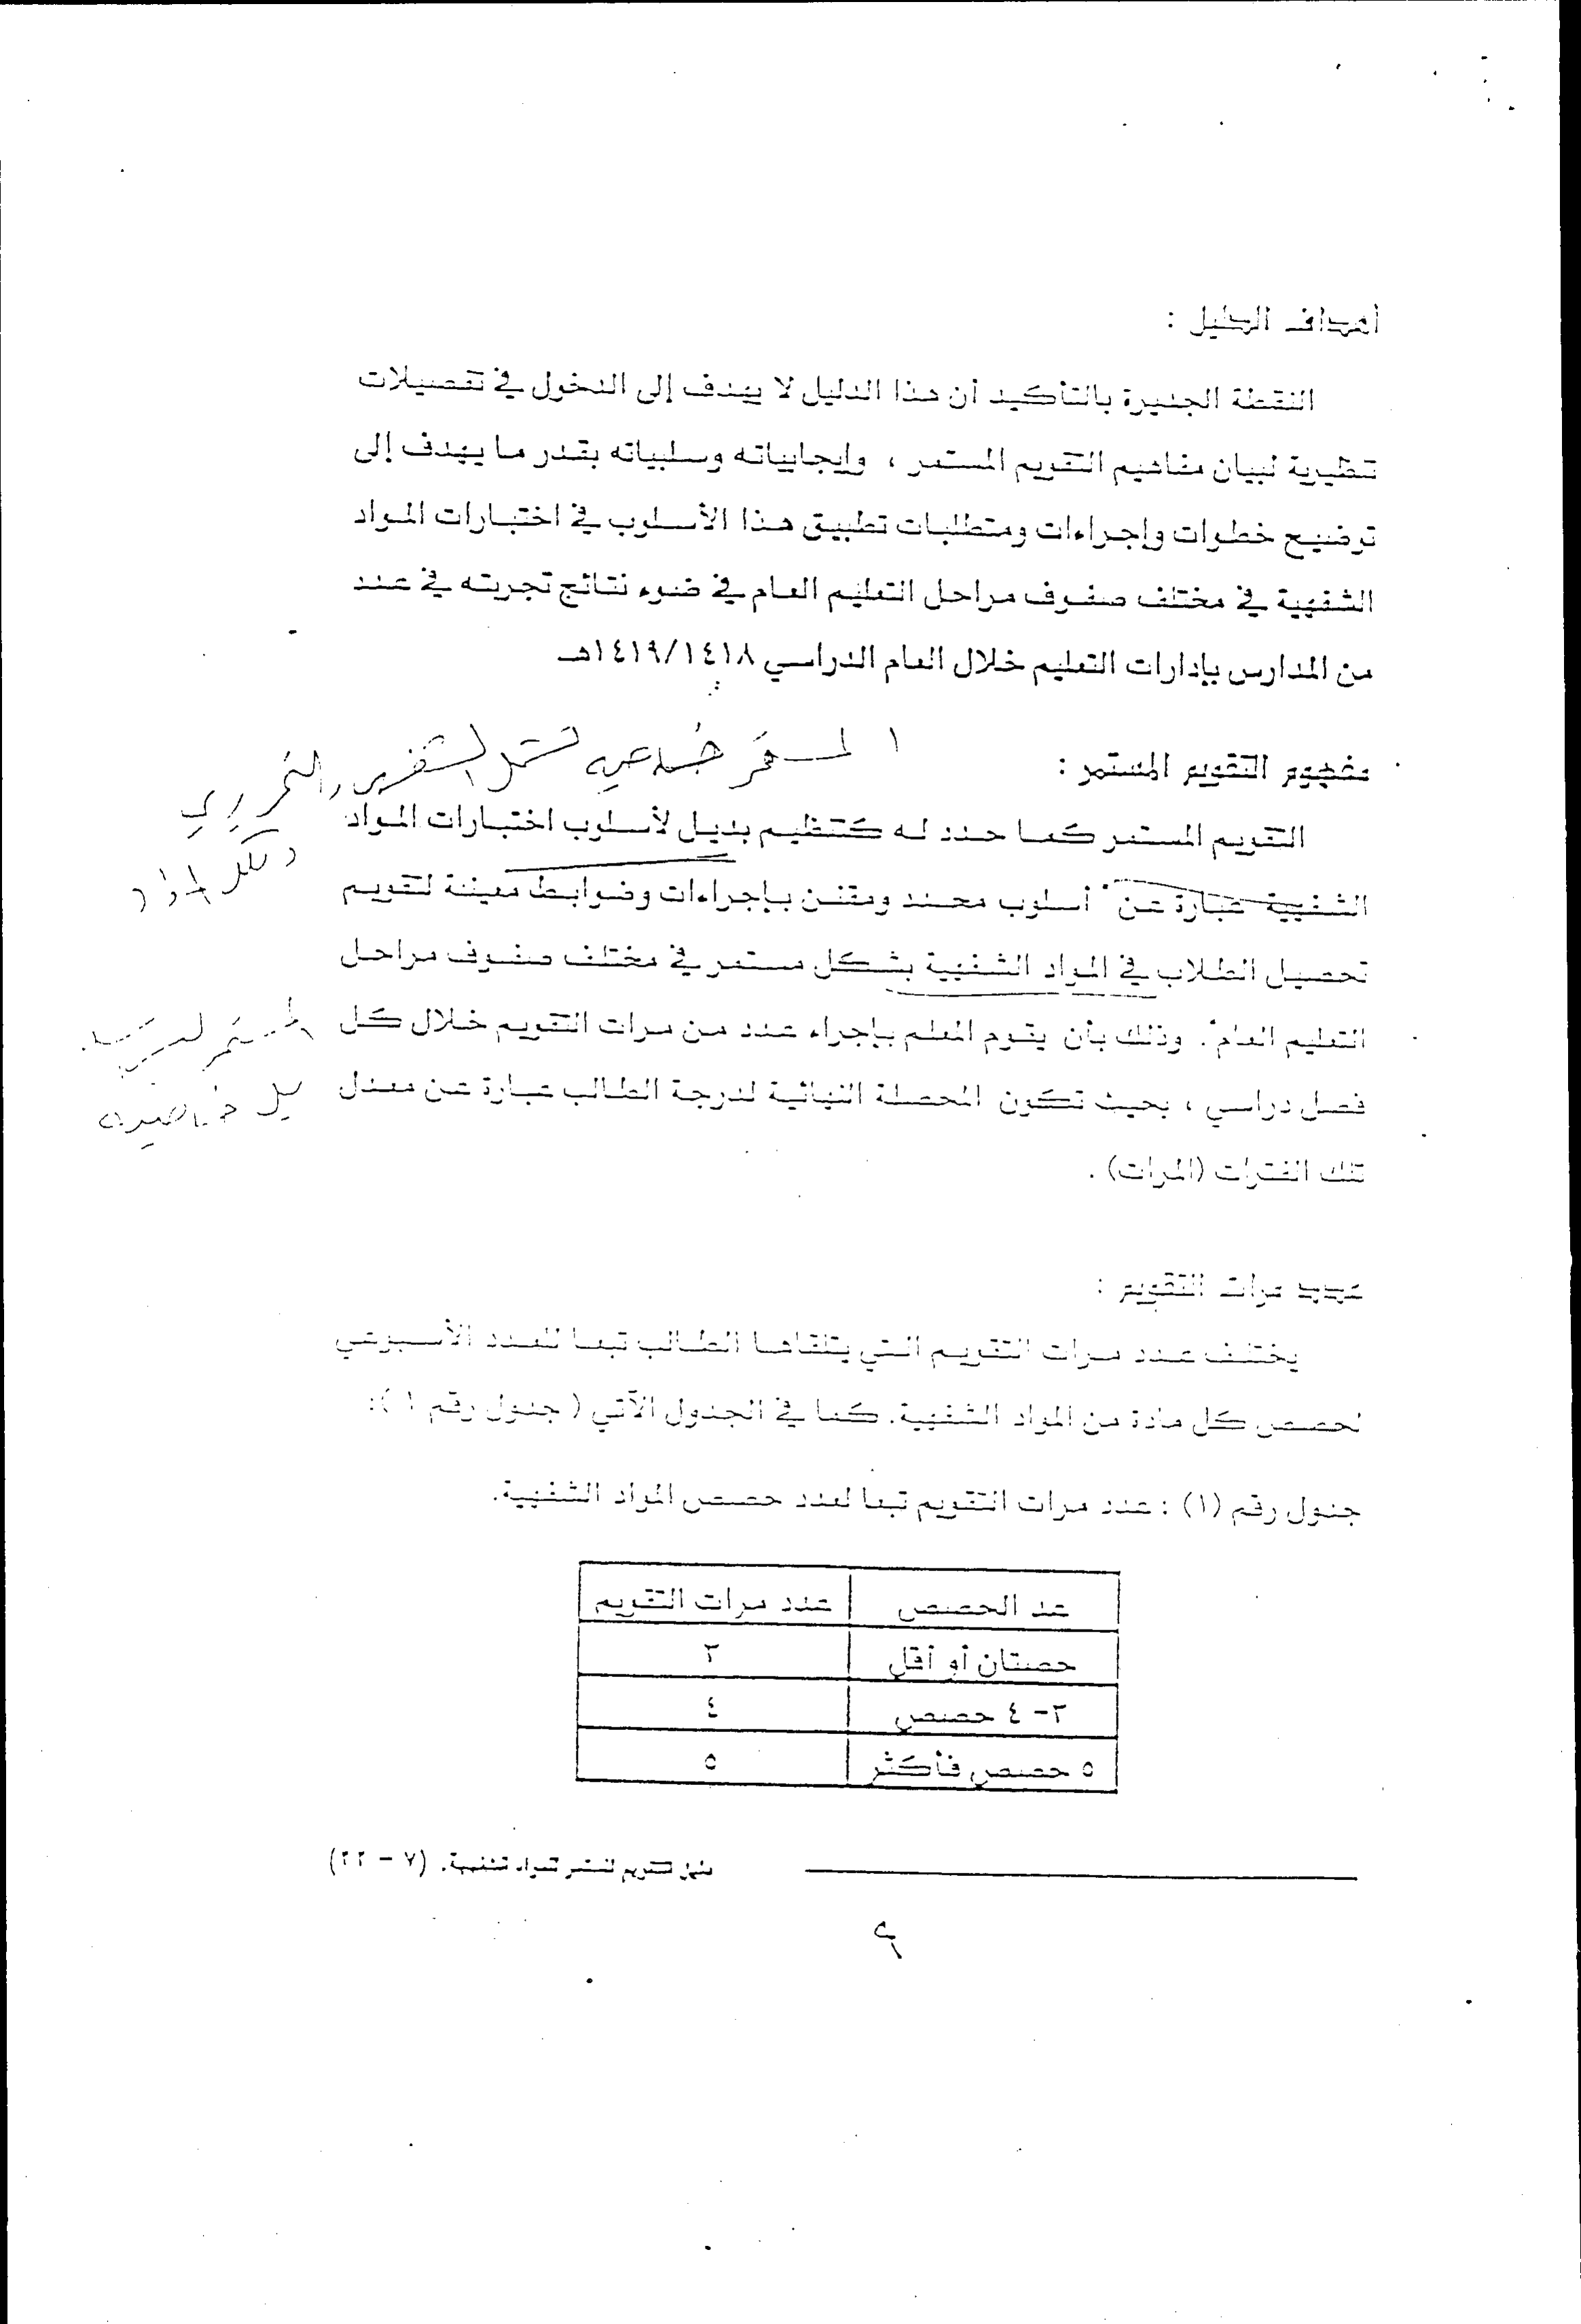 أهداف الدليل :
النقطة الجديرة بالتأكيد أن هذا الدليل لا يهدف إلى الدخول في تفصيلات
تنظيرية لبيان مفاهيم التقويم المستمر ، وإيجابياته وسلبياته بقدر ما يهدف إلى
توضيح خطوات وإجراءات ومتطلبات تطبيق هذا الأسلوب في اختبارات المواد
الشفهية في مختلف صفوف مراحل التعليم العام في ضوء نتائج تجربته في عدد
من المدارس بإدارات التعليم خلال العام الدراسي ١٤١٩/١٤١٨هـ
مفهوم التقويم المستمر :
المستمر
والتحريري
التقويم المستمر كما حدد له كتنظيم بديل لأسلوب اختبارات المواد
الشفهية عبارة عن "أسلوب محدد ومقنن بإجراءات وضوابط معينة لتقويم
تحصيل الطلاب في المواد الشفهية بشكل مستمر في مختلف صفوف مراحل
التعليم العام". وذلك بأن يقوم المعلم بإجراء عدد من مرات التقويم خلال كل
فصل دراسي ، بحيث تكون المحصلة النهائية لدرجة الطالب عبارة عن معدل
تلك الفترات (المرات) .
عدد مرات التقويم :
يختلف عدد مرات التقويم التي يتلقاها الطالب تبعا للعدد الأسبوعي
لحصص كل مادة من المواد الشفهية. كما في الجدول الآتي ( جدول رقم ١ ):
جدول رقم (١) : عدد مرات التقويم تبعا لعدد حصص المواد الشفهية.
عد الحصص عدد مرات التقويم
حصتان أو أقل ٣
٣- ٤ حصص ٤
٥ حصص فأكثر ٥
دليل التقويم المستمر للمواد الشفهية. (٧ – ٢٢)